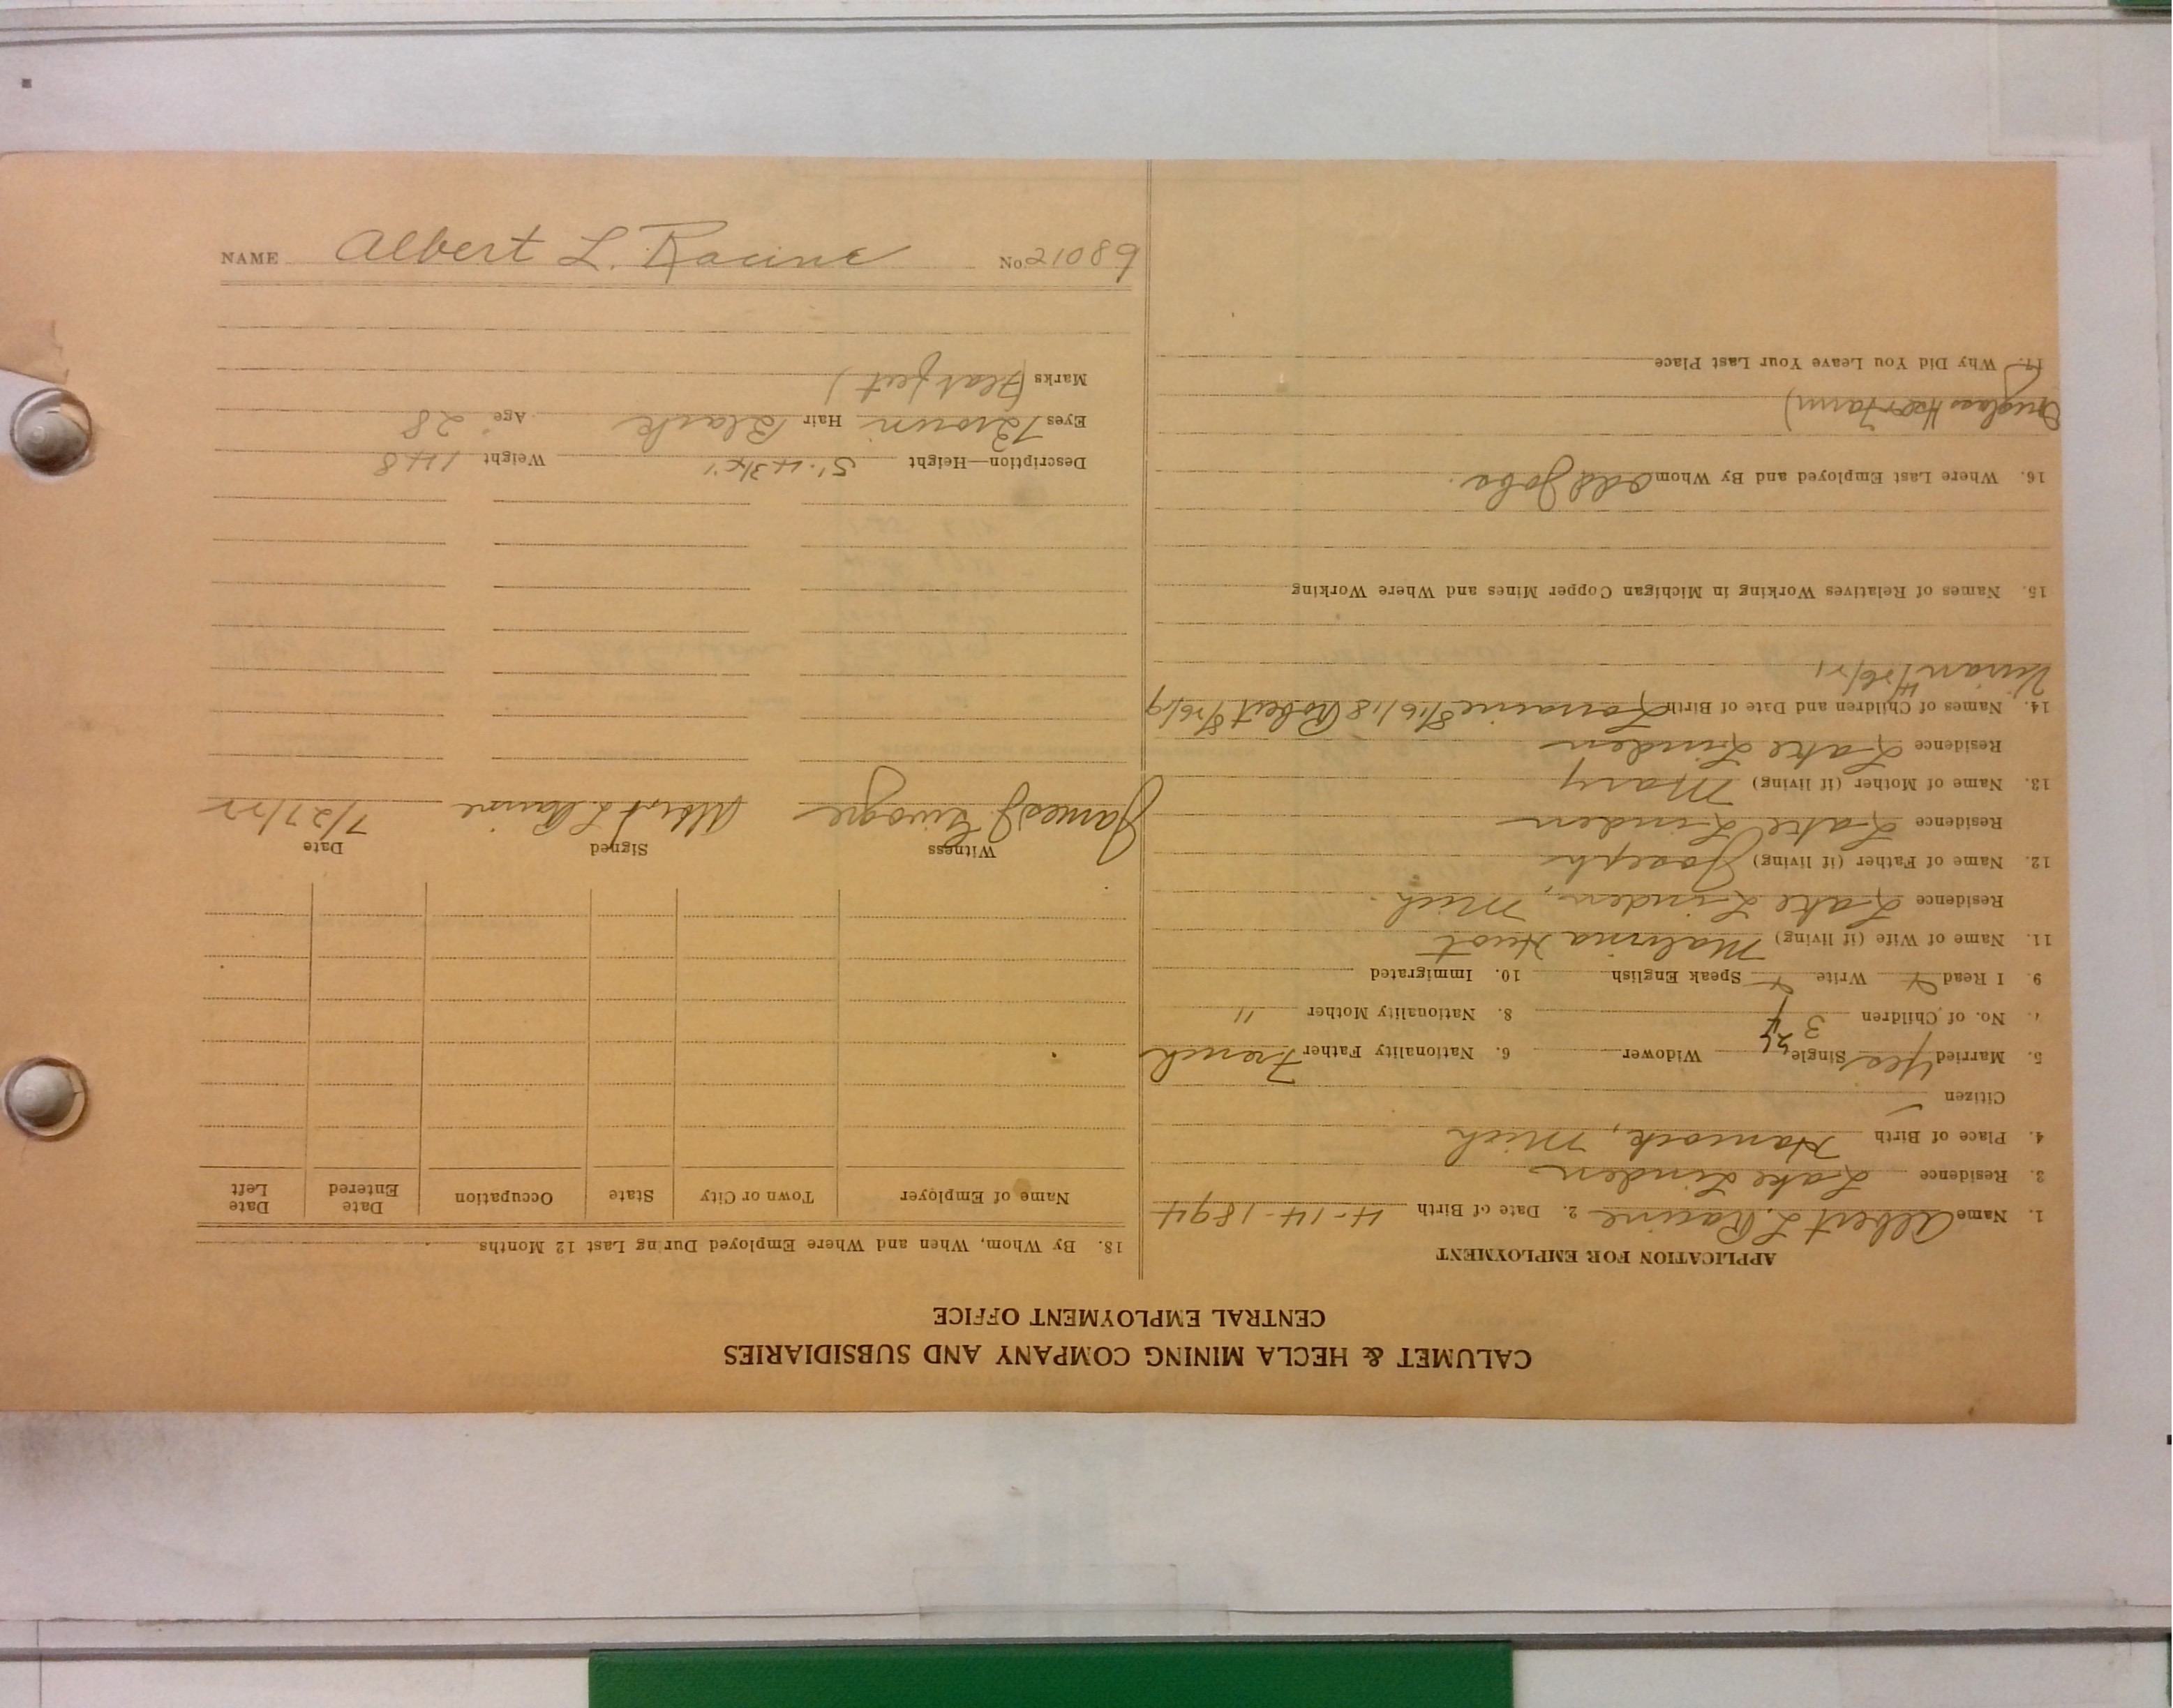 CALUMET & HECLA MINING COMPANY AND SUBSIDIARIES
CENTRAL EMPLOYMENT OFFICE
APPLICATION FOR EMPLOYMENT
1. Name Albert L. Racine 2. Date of Birth 4-14-1894
3. Residence Lake Linden
4. Place of Birth Hancock, Mich
Citizen
5. Married Yes Single Widower 6. Nationality Father French
No. of Children 3 4 8. Nationality Mother "
9. I Read Write Speak English 10. Immigrated
11. Name of Wife (if living) Malvina Huot
Residence Lake Linden, Mich.
12. Name of Father (if living) Joseph
Residence Lake Linden
13. Name of Mother (if living) Mary
Residence Lake Linden
14. Names of Children and Date of Birth Lorraine 8/16/18 Robert 8/26/19
Vivian 4/26/21
15. Names of Relatives Working in Michigan Copper Mines and Where Working
16. Where Last Employed and By Whom Odd Jobs.
Douglass
17. Why Did You Leave Your Last Place
18. By Whom, When and Where Employed During Last 12 Months
Name of Employer Town or City State Occupation Date Entered Date Left
Witness Signed Date
James J. Albert L Racine 7/27/22
Description—Height 5'.4 3/4" Weight 148
Eyes Brown Hair Black Age 28
Marks (Flat feet)
NAME Albert L. Racine No 21089